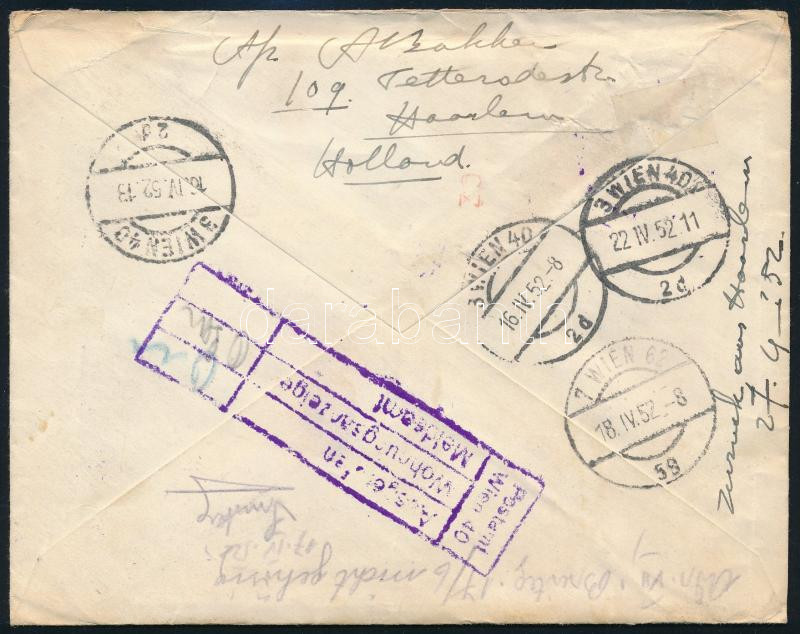 A/z. A Bakker
109. Tetterodestr.
Haarlem
Holland.
3 WIEN 40
16.IV.52.13
2d
3 WIEN 40
16.IV.52.-8
2d
3 WIEN 40
22.IV.52.11
2d
7 WIEN 62
18.IV.52.-8
5g
zurück aus Haarlem
27.4-'52.
darabanth
Postamt
Wien 40
Ausgerufen
Wohnungsanzeige
Meldeamt
17/6 nicht gehörig
17.IV.52